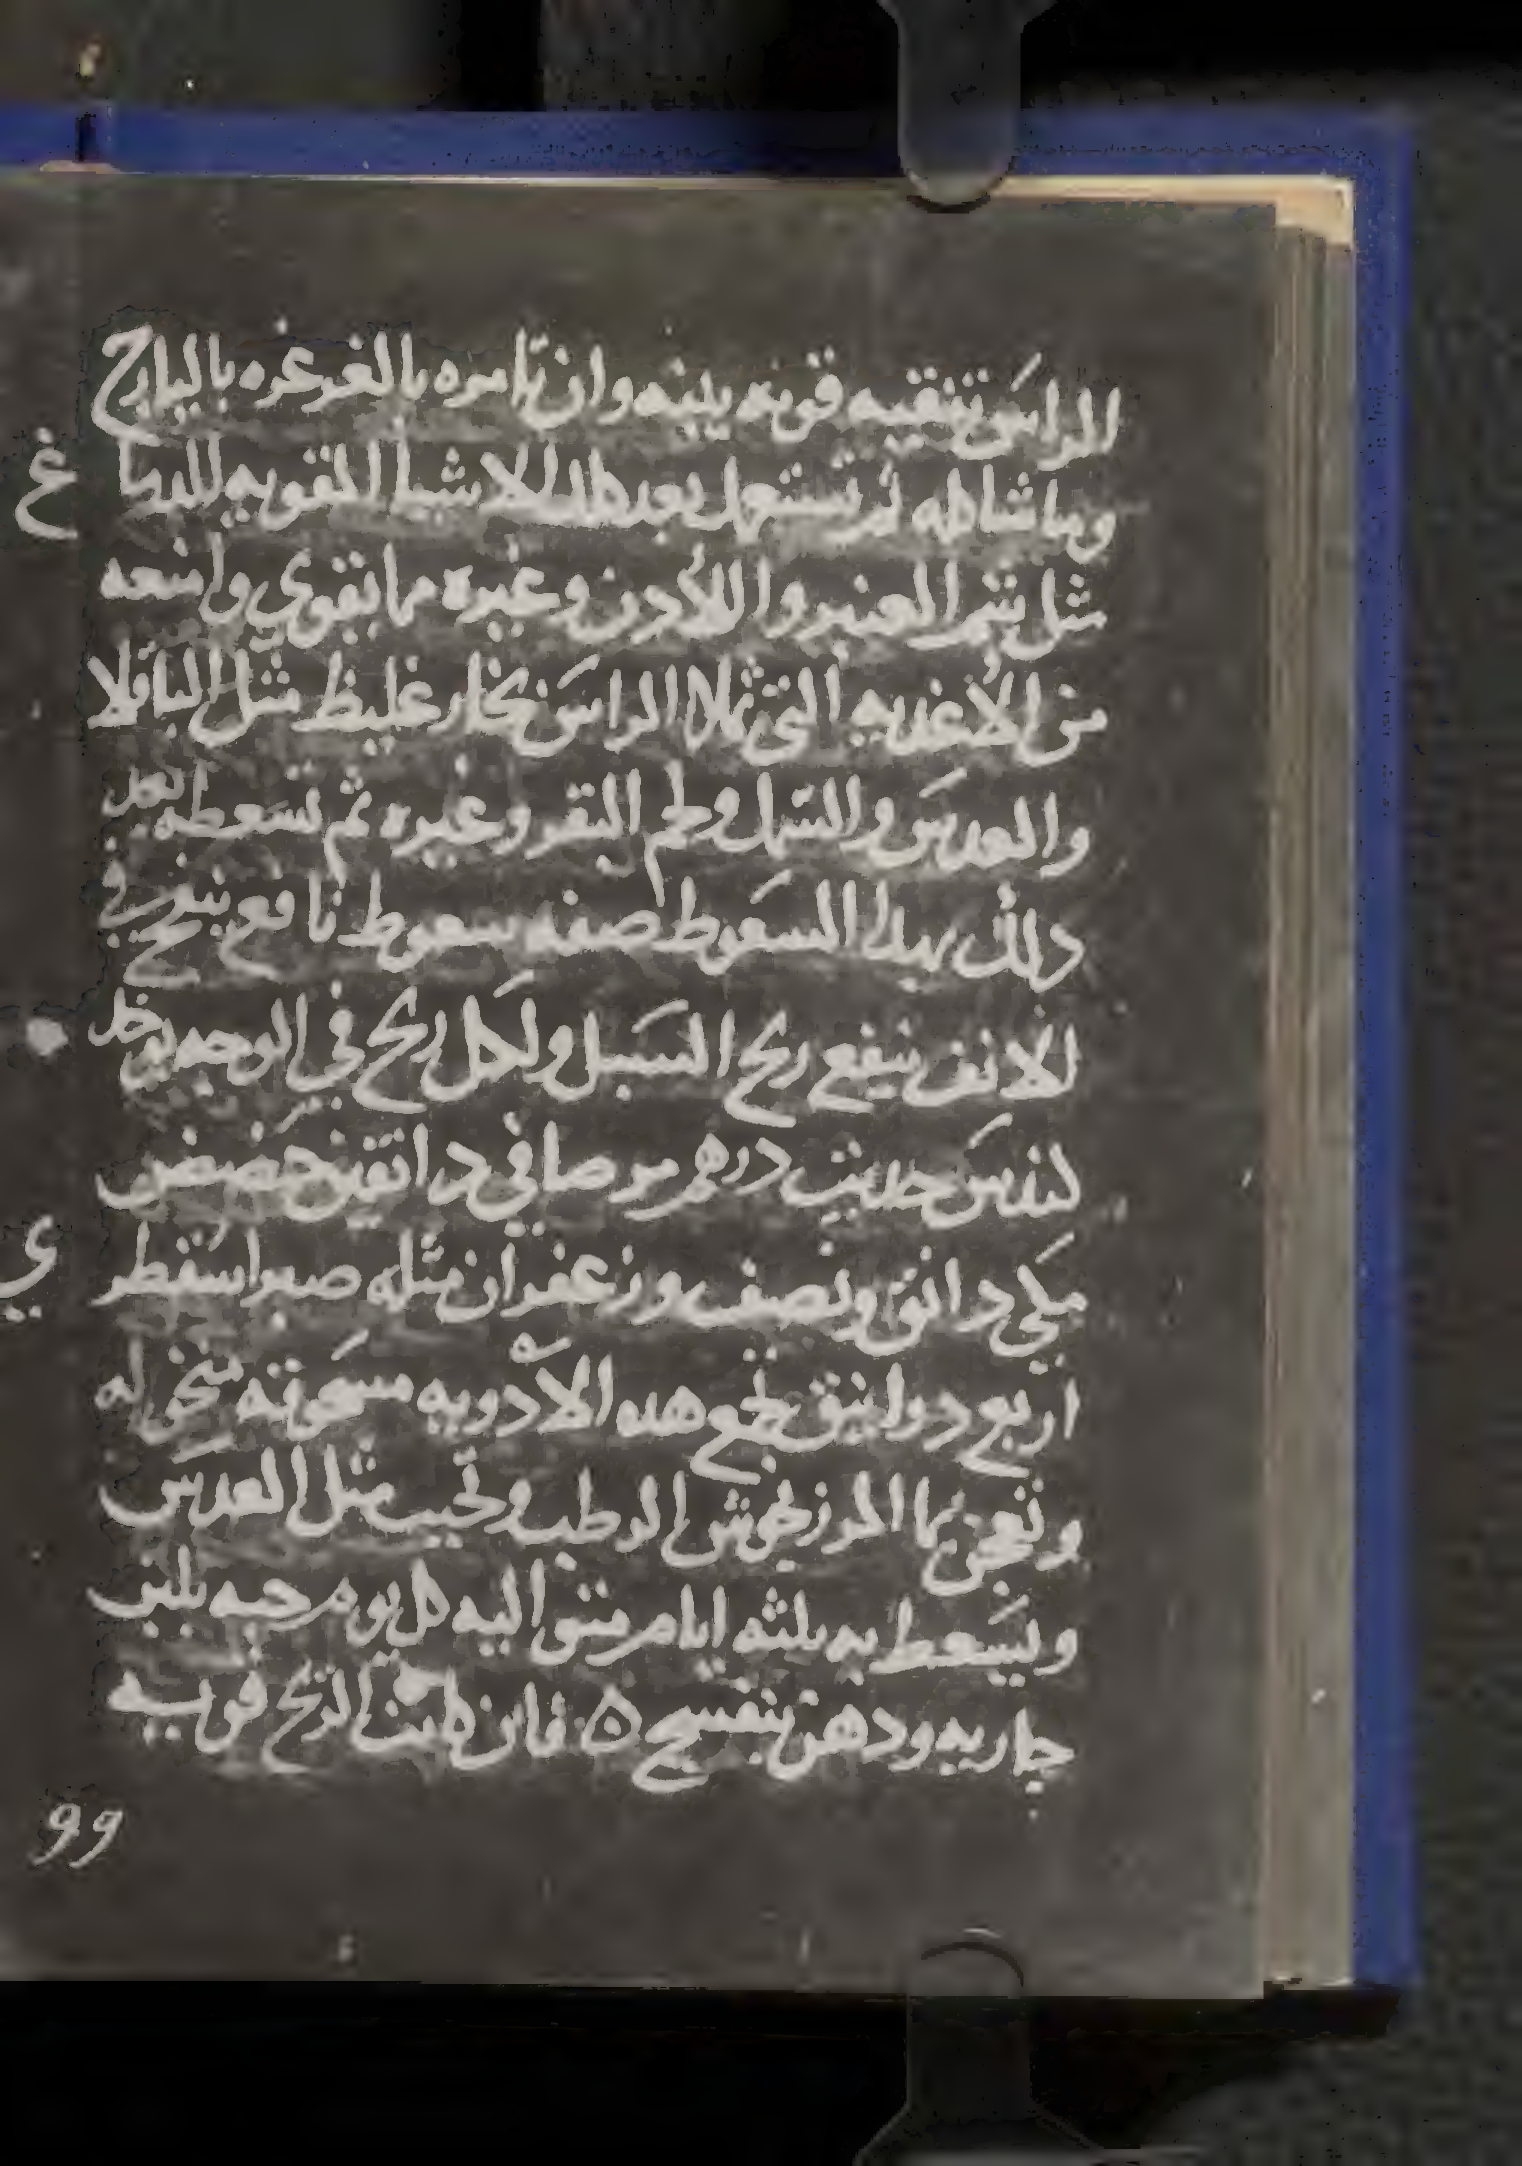 الراس تنقيه قويه بينه وان تامره بالغرغره باليارج
وما شاكله ثم تستعمل بعد ذلك الاشيا المقويه للدماغ
مثل شم العنبر واللادن وغيره مما يقوي وامنعه
من الاغذيه التي تملا الراس بخار غليظ مثل الباقلا
والعدس والسمك ولحم البقر وغيره ثم تسعطه بعد
ذلك بهذا السعوط صفه سعوط نافع ينفع في
الانف ينفع ريح السبل ولكل ريح في الوجه يوخذ
كندس حلتيت درهم مر صافي دانقين حضض
مكي دانق ونصف وزعفران مثله صبر اسقطري
اربع دوانيق يجمع هده الادويه مسحوقه منخوله
وتعجن بما المرزنجوش الرطب وتحبب مثل العدس
ويسعط به ثلثه ايام متواليه كل يوم حبه بلبن
جاريه ودهن بنفسج ٥ فان كانت الريح قويه
99